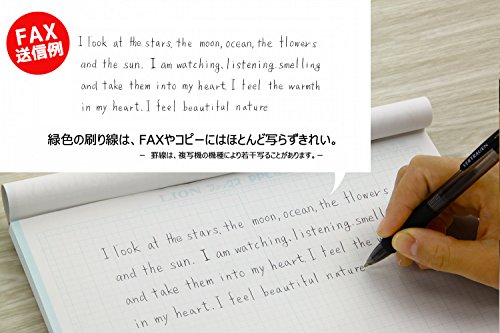 FAX
送信例
I look at the stars, the moon, ocean, the flowers
and the sun. I am watching, listening, smelling
and take them into my heart. I feel the warmth
in my heart. I feel beautiful nature
緑色の刷り線は、FAXやコピーにはほとんど写らずきれい。
－ 罫線は、複写機の機種により若干写ることがあります。－
I look at the stars, the moon, ocean, the flowers
and the sun. I am watching, listening, smelling
and take them into my heart. I feel the
in my heart. I feel beautiful nature